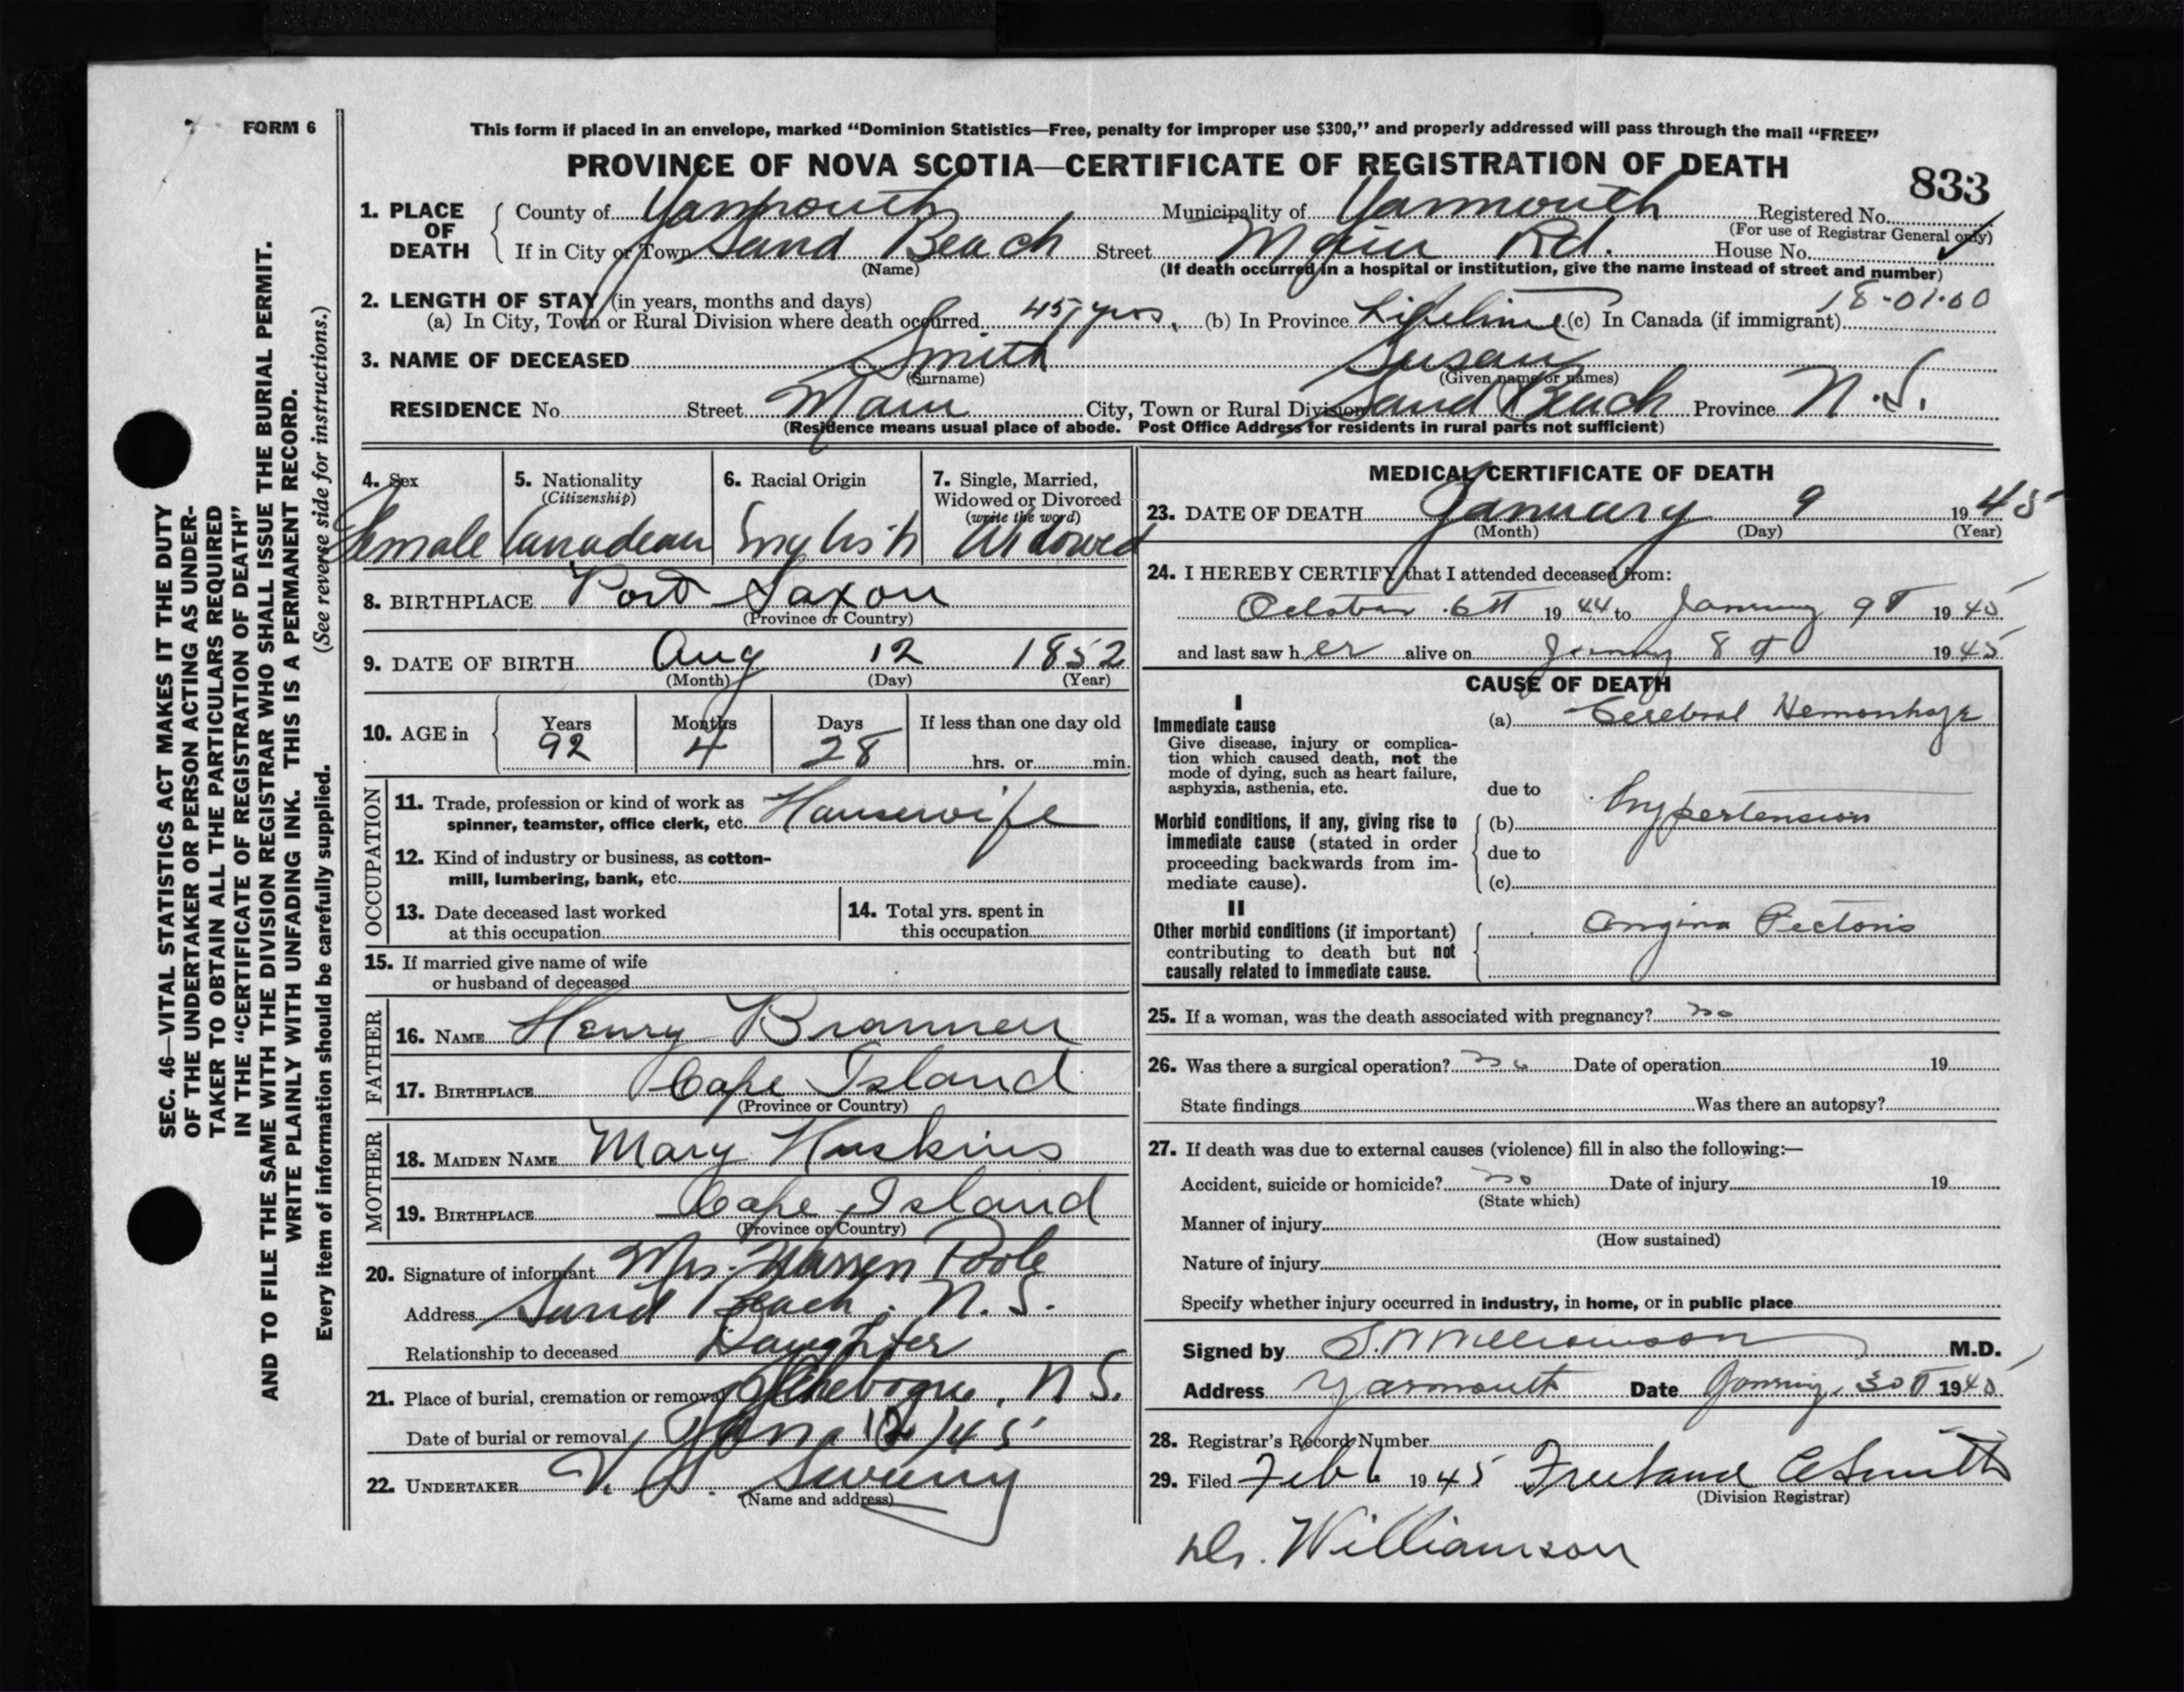 FORM 6
This form if placed in an envelope, marked "Dominion Statistics—Free, penalty for improper use $300," and properly addressed will pass through the mail "FREE"
PROVINCE OF NOVA SCOTIA—CERTIFICATE OF REGISTRATION OF DEATH
833
1. PLACE OF DEATH
County of Yarmouth Municipality of Yarmouth Registered No.
(For use of Registrar General only)
If in City or Town Sand Beach Street Main Rd. House No.
(Name)
(If death occurred in a hospital or institution, give the name instead of street and number)
2. LENGTH OF STAY (in years, months and days)
18-01-00
(a) In City, Town or Rural Division where death occurred 45 yrs. (b) In Province Lifetime (c) In Canada (if immigrant)
3. NAME OF DECEASED Smith Susan
(Surname) (Given name or names)
RESIDENCE No. Street Main City, Town or Rural Division Sand Beach Province N.S.
(Residence means usual place of abode. Post Office Address for residents in rural parts not sufficient)
4. Sex
Female
5. Nationality
(Citizenship)
Canadean
6. Racial Origin
English
7. Single, Married,
Widowed or Divorced
(write the word)
Widowed
8. BIRTHPLACE Port Saxon
(Province or Country)
9. DATE OF BIRTH Aug 12 1852
(Month) (Day) (Year)
10. AGE in
Years Months Days If less than one day old
92 4 28 hrs. or min.
OCCUPATION
11. Trade, profession or kind of work as
spinner, teamster, office clerk, etc. Housewife
12. Kind of industry or business, as cotton-
mill, lumbering, bank, etc.
13. Date deceased last worked
at this occupation
14. Total yrs. spent in
this occupation
15. If married give name of wife
or husband of deceased
FATHER
16. NAME Henry Brannen
17. BIRTHPLACE Cape Island
(Province or Country)
MOTHER
18. MAIDEN NAME Mary Huskins
19. BIRTHPLACE Cape Island
(Province or Country)
20. Signature of informant Mrs. Warren Poole
Address Sand Beach, N.S.
Relationship to deceased Daughter
21. Place of burial, cremation or removal Chebogue, N S.
Date of burial or removal Jan 12/45
22. UNDERTAKER V. S. Sweeny
(Name and address)
MEDICAL CERTIFICATE OF DEATH
23. DATE OF DEATH January 9 1945
(Month) (Day) (Year)
24. I HEREBY CERTIFY that I attended deceased from:
October 6th 1944 to January 9th 1945
and last saw her alive on January 8th 1945
CAUSE OF DEATH
I
Immediate cause
Give disease, injury or complica-
tion which caused death, not the
mode of dying, such as heart failure,
asphyxia, asthenia, etc.
(a) Cerebral Hemorrhage
due to
Morbid conditions, if any, giving rise to
immediate cause (stated in order
proceeding backwards from im-
mediate cause).
(b) hypertension
due to
(c)
II
Other morbid conditions (if important)
contributing to death but not
causally related to immediate cause.
Angina Pectoris
25. If a woman, was the death associated with pregnancy? no
26. Was there a surgical operation? no Date of operation 19
State findings Was there an autopsy?
27. If death was due to external causes (violence) fill in also the following:—
Accident, suicide or homicide? no Date of injury 19
(State which)
Manner of injury
(How sustained)
Nature of injury
Specify whether injury occurred in industry, in home, or in public place
Signed by S. W Williamson M.D.
Address Yarmouth Date January 30th 1945
28. Registrar's Record Number
29. Filed Feb 6 1945 Freeland C Smith
(Division Registrar)
Dr. Williamson
SEC. 46—VITAL STATISTICS ACT MAKES IT THE DUTY
OF THE UNDERTAKER OR PERSON ACTING AS UNDER-
TAKER TO OBTAIN ALL THE PARTICULARS REQUIRED
IN THE "CERTIFICATE OF REGISTRATION OF DEATH"
AND TO FILE THE SAME WITH THE DIVISION REGISTRAR WHO SHALL ISSUE THE BURIAL PERMIT.
WRITE PLAINLY WITH UNFADING INK. THIS IS A PERMANENT RECORD.
Every item of information should be carefully supplied. (See reverse side for instructions.)